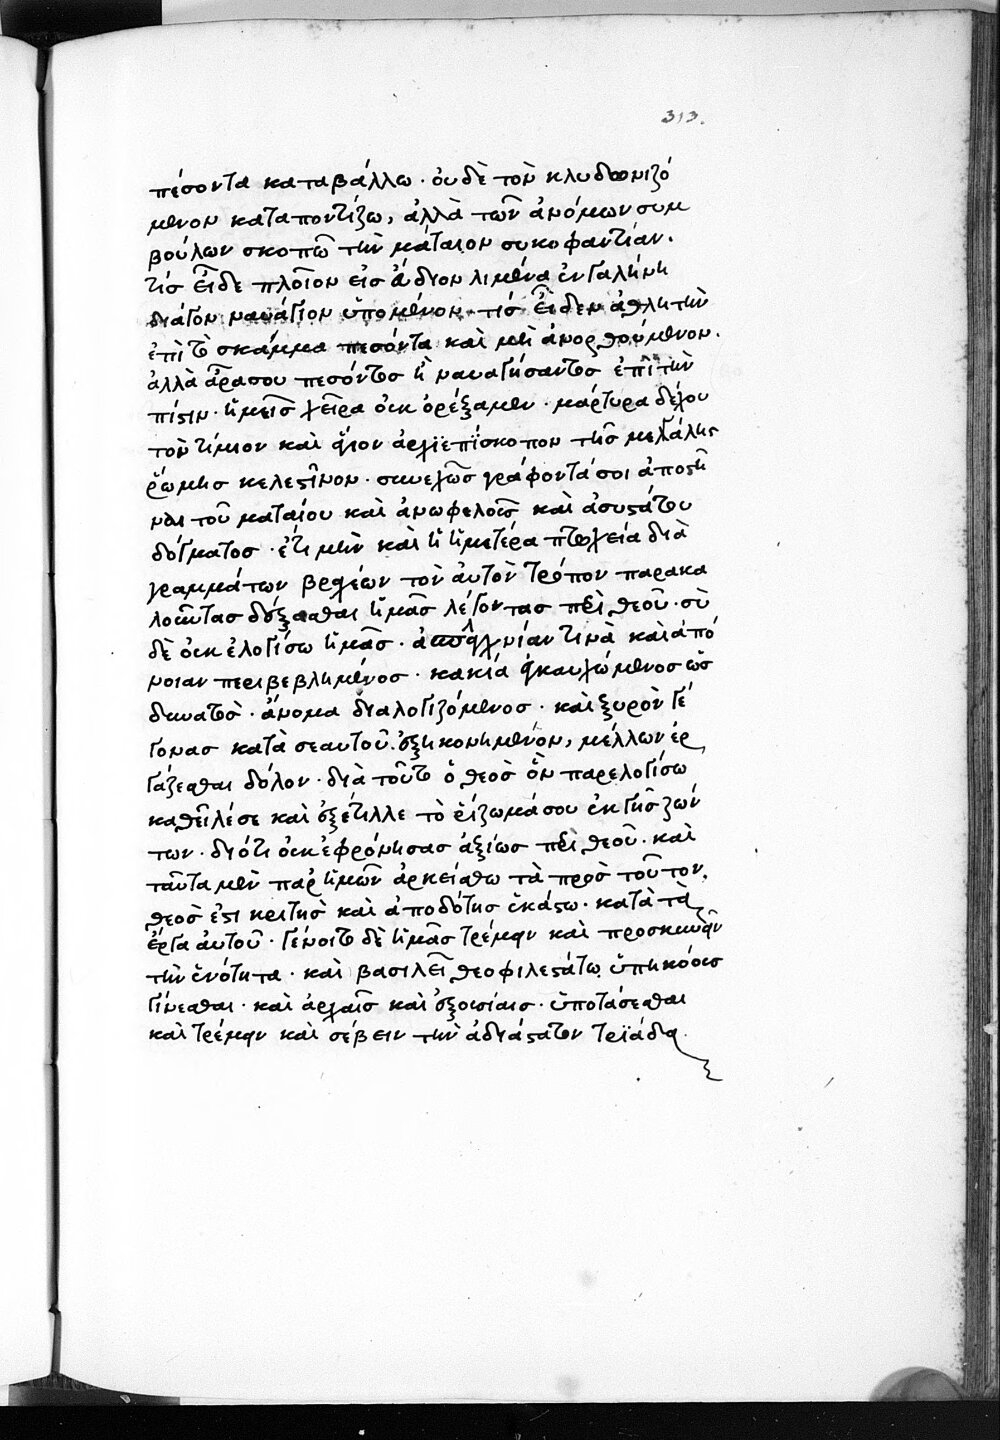 313.
πέσοντα καταβάλλω · οὐδὲ τὸν κλυδωνιζό
μενον καταποντίζω, ἀλλὰ τῶν ἀνόμων συμ
βούλων σκοπῶ τὴν μάταιον συκοφαντίαν.
τίσ εἶδε πλοῖον εἰσ εὔδιον λιμένα ἐν γαλήνη
διάγον ναυάγιον ὑπομένον · τίσ εἶδεν ἀθλητὴν
ἐπὶ τὸ σκάμμα πεσόντα καὶ μὴ ἀνορθούμενον.
ἀλλὰ ἆρα σου πεσόντοσ ἢ ναυαγήσαντοσ ἐπὶ τὴν
πίστιν · ἡμεῖσ χεῖρα οὐκ ὀρέξαμεν · μάρτυρα δέχου
τὸν τίμιον καὶ ἅγιον ἀρχιεπίσκοπον τῆσ μεγάλησ
ῥώμησ κελεστῖνον · συνεχῶσ γράφοντά σοι ἀποστῆ
ναι τοῦ ματαίου καὶ ἀνωφελοῦσ καὶ ἀσυστάτου
δόγματοσ · ἔτι μὴν καὶ ἡ ἡμετέρα πτωχεία διὰ
γραμμάτων βραχέων τὸν αὐτὸν τρόπον παρακα
λοῦντασ δέξασθαι ἡμᾶσ λέγοντασ περὶ θεοῦ · σὺ
δὲ οὐκ ἐλογίσω ἡμᾶσ · τινὰ καὶ ἀπό
νοιαν περιβεβλημένοσ · κακία ἐγκαυχώμενοσ ὡσ
δυνατὸσ · ἄνομα διαλογιζόμενοσ · καὶ ξυρὸν γέ
γονασ κατὰ σεαυτοῦ ἐξηκονημένον, μέλλων ἐρ
γάζεσθαι δόλον · διὰ τοῦτο ὁ θεὸσ ὃν παρελογίσω
καθεῖλέ σε καὶ ἐξέτιλλε τὸ ῥίζωμά σου ἐκ γῆσ ζών
των · διότι οὐκ ἐφρόνησασ ἀξίωσ περὶ θεοῦ · καὶ
ταῦτα μὲν παρ ἡμῶν ἀρκείσθω τὰ πρὸσ τοῦτον.
θεὸσ ἐστι κριτὴσ καὶ ἀποδότησ ἑκάστω · κατὰ τὰ
ἔργα αὐτοῦ · γένοιτο δὲ ἡμᾶσ τρέμειν καὶ προσκυνεῖν
τὴν ἑνότητα · καὶ βασιλεῖ θεοφιλεστάτω ὑπηκόουσ
γίνεσθαι · καὶ ἀρχαῖσ καὶ ἐξουσίαισ · ὑποτάσεσθαι
καὶ τρέμειν καὶ σέβειν τὴν ἀδιάστατον τριάδα